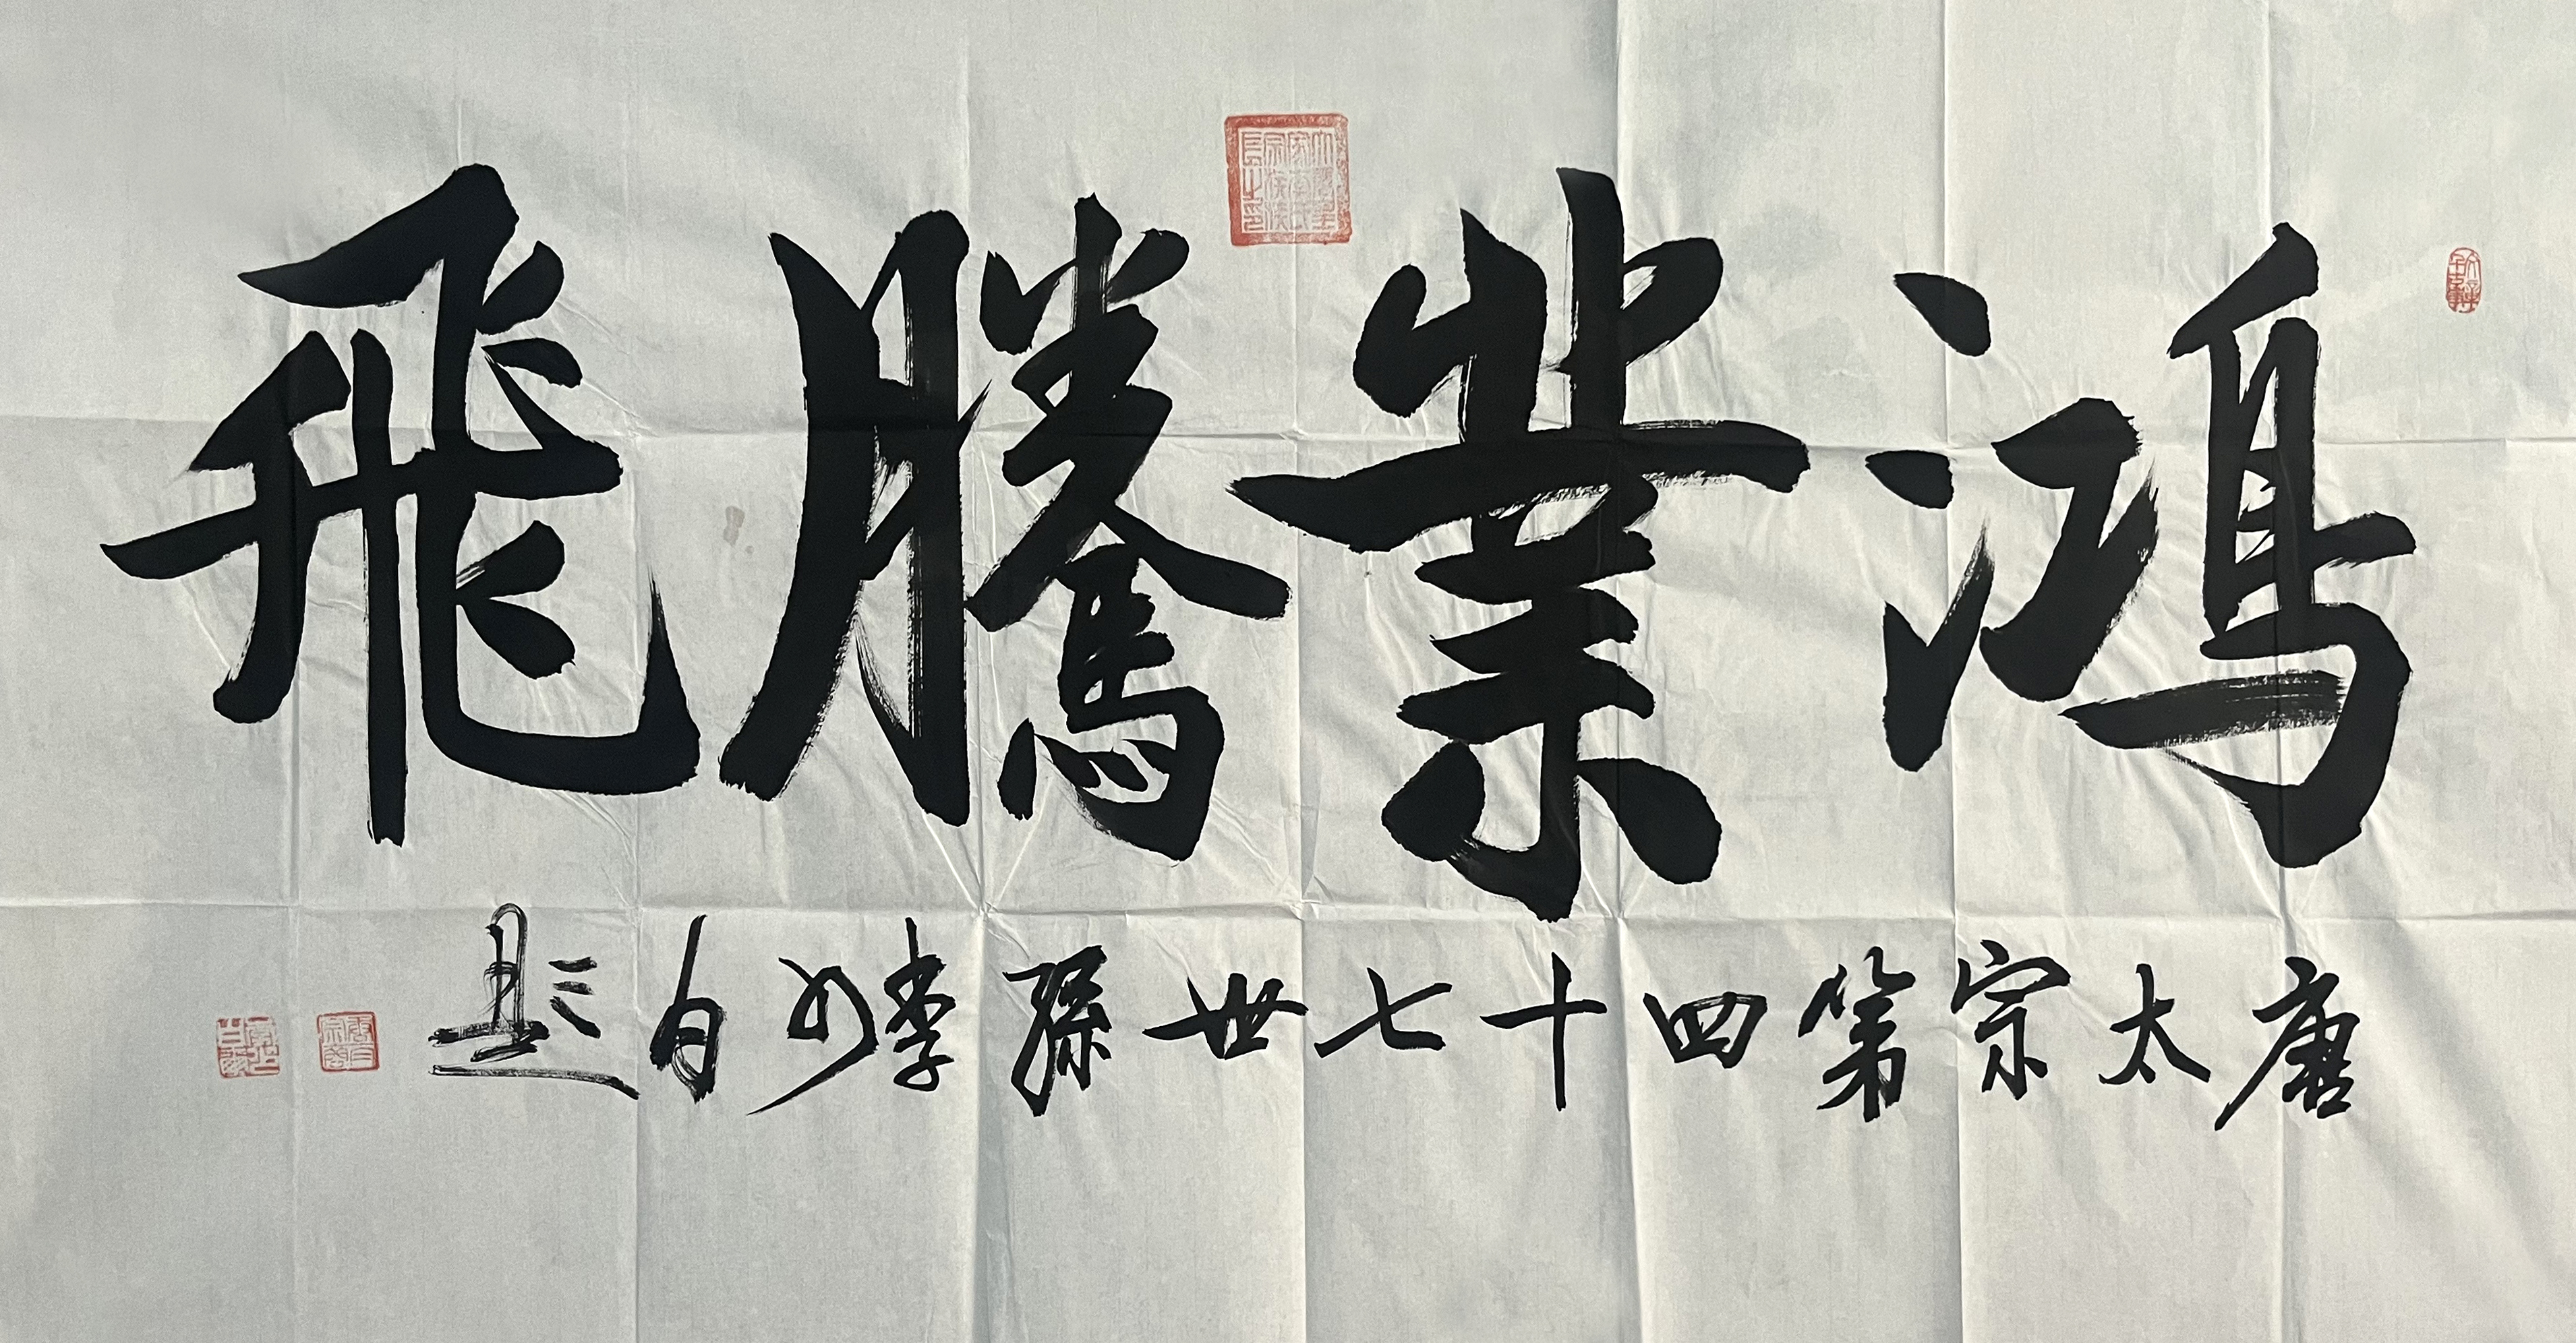 鴻業騰飛
唐太宗第四十七世孫李如白題